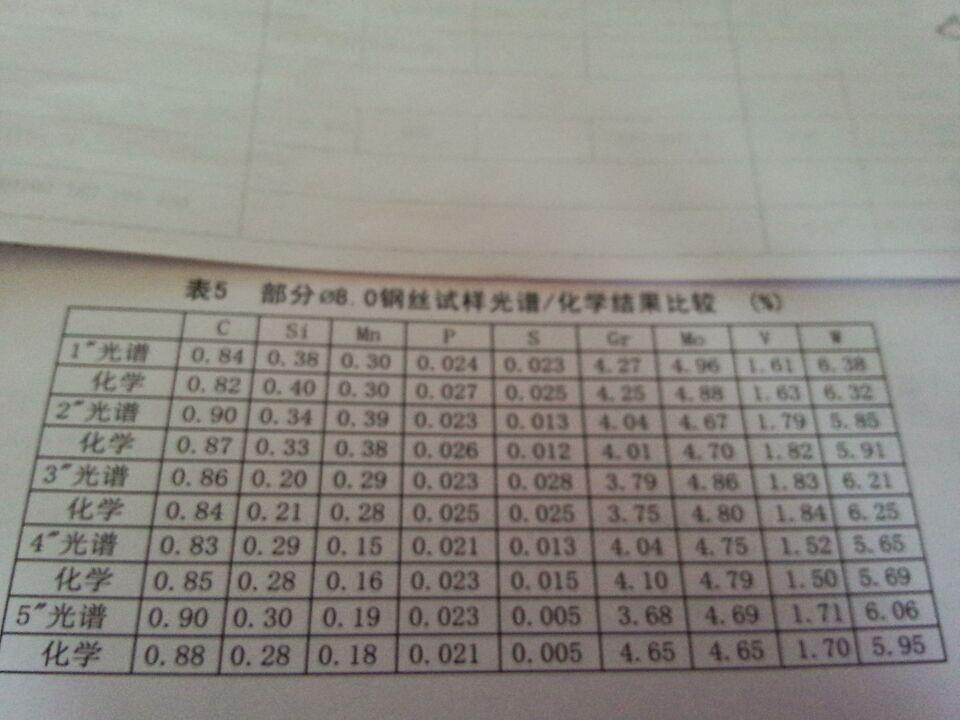 表5 部分ø8.0钢丝试样光谱/化学结果比较 (%)
C Si Mn P S Gr Mo V W
1"光谱 0.84 0.38 0.30 0.024 0.023 4.27 4.96 1.61 6.38
化学 0.82 0.40 0.30 0.027 0.025 4.25 4.88 1.63 6.32
2"光谱 0.90 0.34 0.39 0.023 0.013 4.04 4.67 1.79 5.85
化学 0.87 0.33 0.38 0.026 0.012 4.01 4.70 1.82 5.91
3"光谱 0.86 0.20 0.29 0.023 0.028 3.79 4.86 1.83 6.21
化学 0.84 0.21 0.28 0.025 0.025 3.75 4.80 1.84 6.25
4"光谱 0.83 0.29 0.15 0.021 0.013 4.04 4.75 1.52 5.65
化学 0.85 0.28 0.16 0.023 0.015 4.10 4.79 1.50 5.69
5"光谱 0.90 0.30 0.19 0.023 0.005 3.68 4.69 1.71 6.06
化学 0.88 0.28 0.18 0.021 0.005 4.65 4.65 1.70 5.95